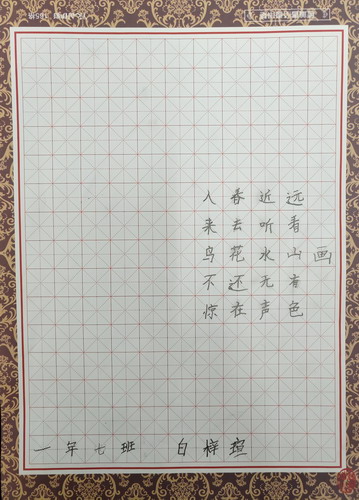 画
远看山有色
近听水无声
春去花还在
人来鸟不惊
一年七班 白梓瑄